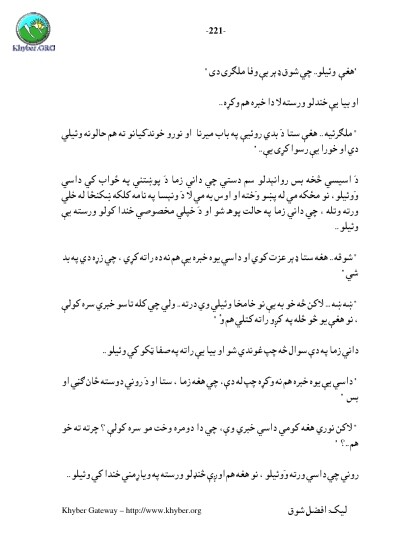 -221-
Khyber.ORG
"هغې وئیلو.. چې شوق ډېر بې وفا ملګری دی"
او بیا یې خندلو ورسته لا دا خبره هم وکړه..
"ملګرتیه.. هغې ستا دَ بدې روئیې په باب میرنا او نورو خوندکیانو ته هم حالونه وئیلي
دي او خورا یې رسوا کړی یې.. "
دَ اسپسې څخه بس روانېدلو سم دستي چې داني زما دَ پوښتنې په ځواب کې داسې
وَوئیلو، نو مځکه مې له پښو وَختله او اوس یه مې لا دَ ونیسا په نامه کلکه ښکنځا له خلې
ورته وتله، چې داني زما په حالت پوهـ شو او دَ خپلې مخصوصې خندا کولو ورسته یې
وئیلو..
"شوقه.. هغه ستا ډېر عزت کوي او داسې یوه خبره یې هم نه ده راته کړې، چې زړه دې په بد
شي"
"ښه ښه.. لاکن څه خو به یې نو خامخا وئیلي وي درته.. ولې چې کله تاسو خبرې سره کولې
، نو هغې یو څو ځله په کږو راته کتلي هم وُ"
داني زما په دې سوال څه چپ غوندي شو او بیا یې راته په صفا ټکو کې وئیلو..
"داسې یې یوه خبره هم نه وکړه چپ له دې، چې هغه زما، ستا او دَ روني دوسته ځان ګڼي او
بس"
"لاکن نوري هغه کومې داسې خبرې وې، چې دا دومره وخت مو سره کولې؟ چرته ته خو
هم..؟"
روني چې داسې ورته وَوئیلو، نو هغه هم اوږې څنډلو ورسته په ویاړمنې خندا کې وئیلو..
Khyber Gateway – http://www.khyber.org
لیک: افضل شوق